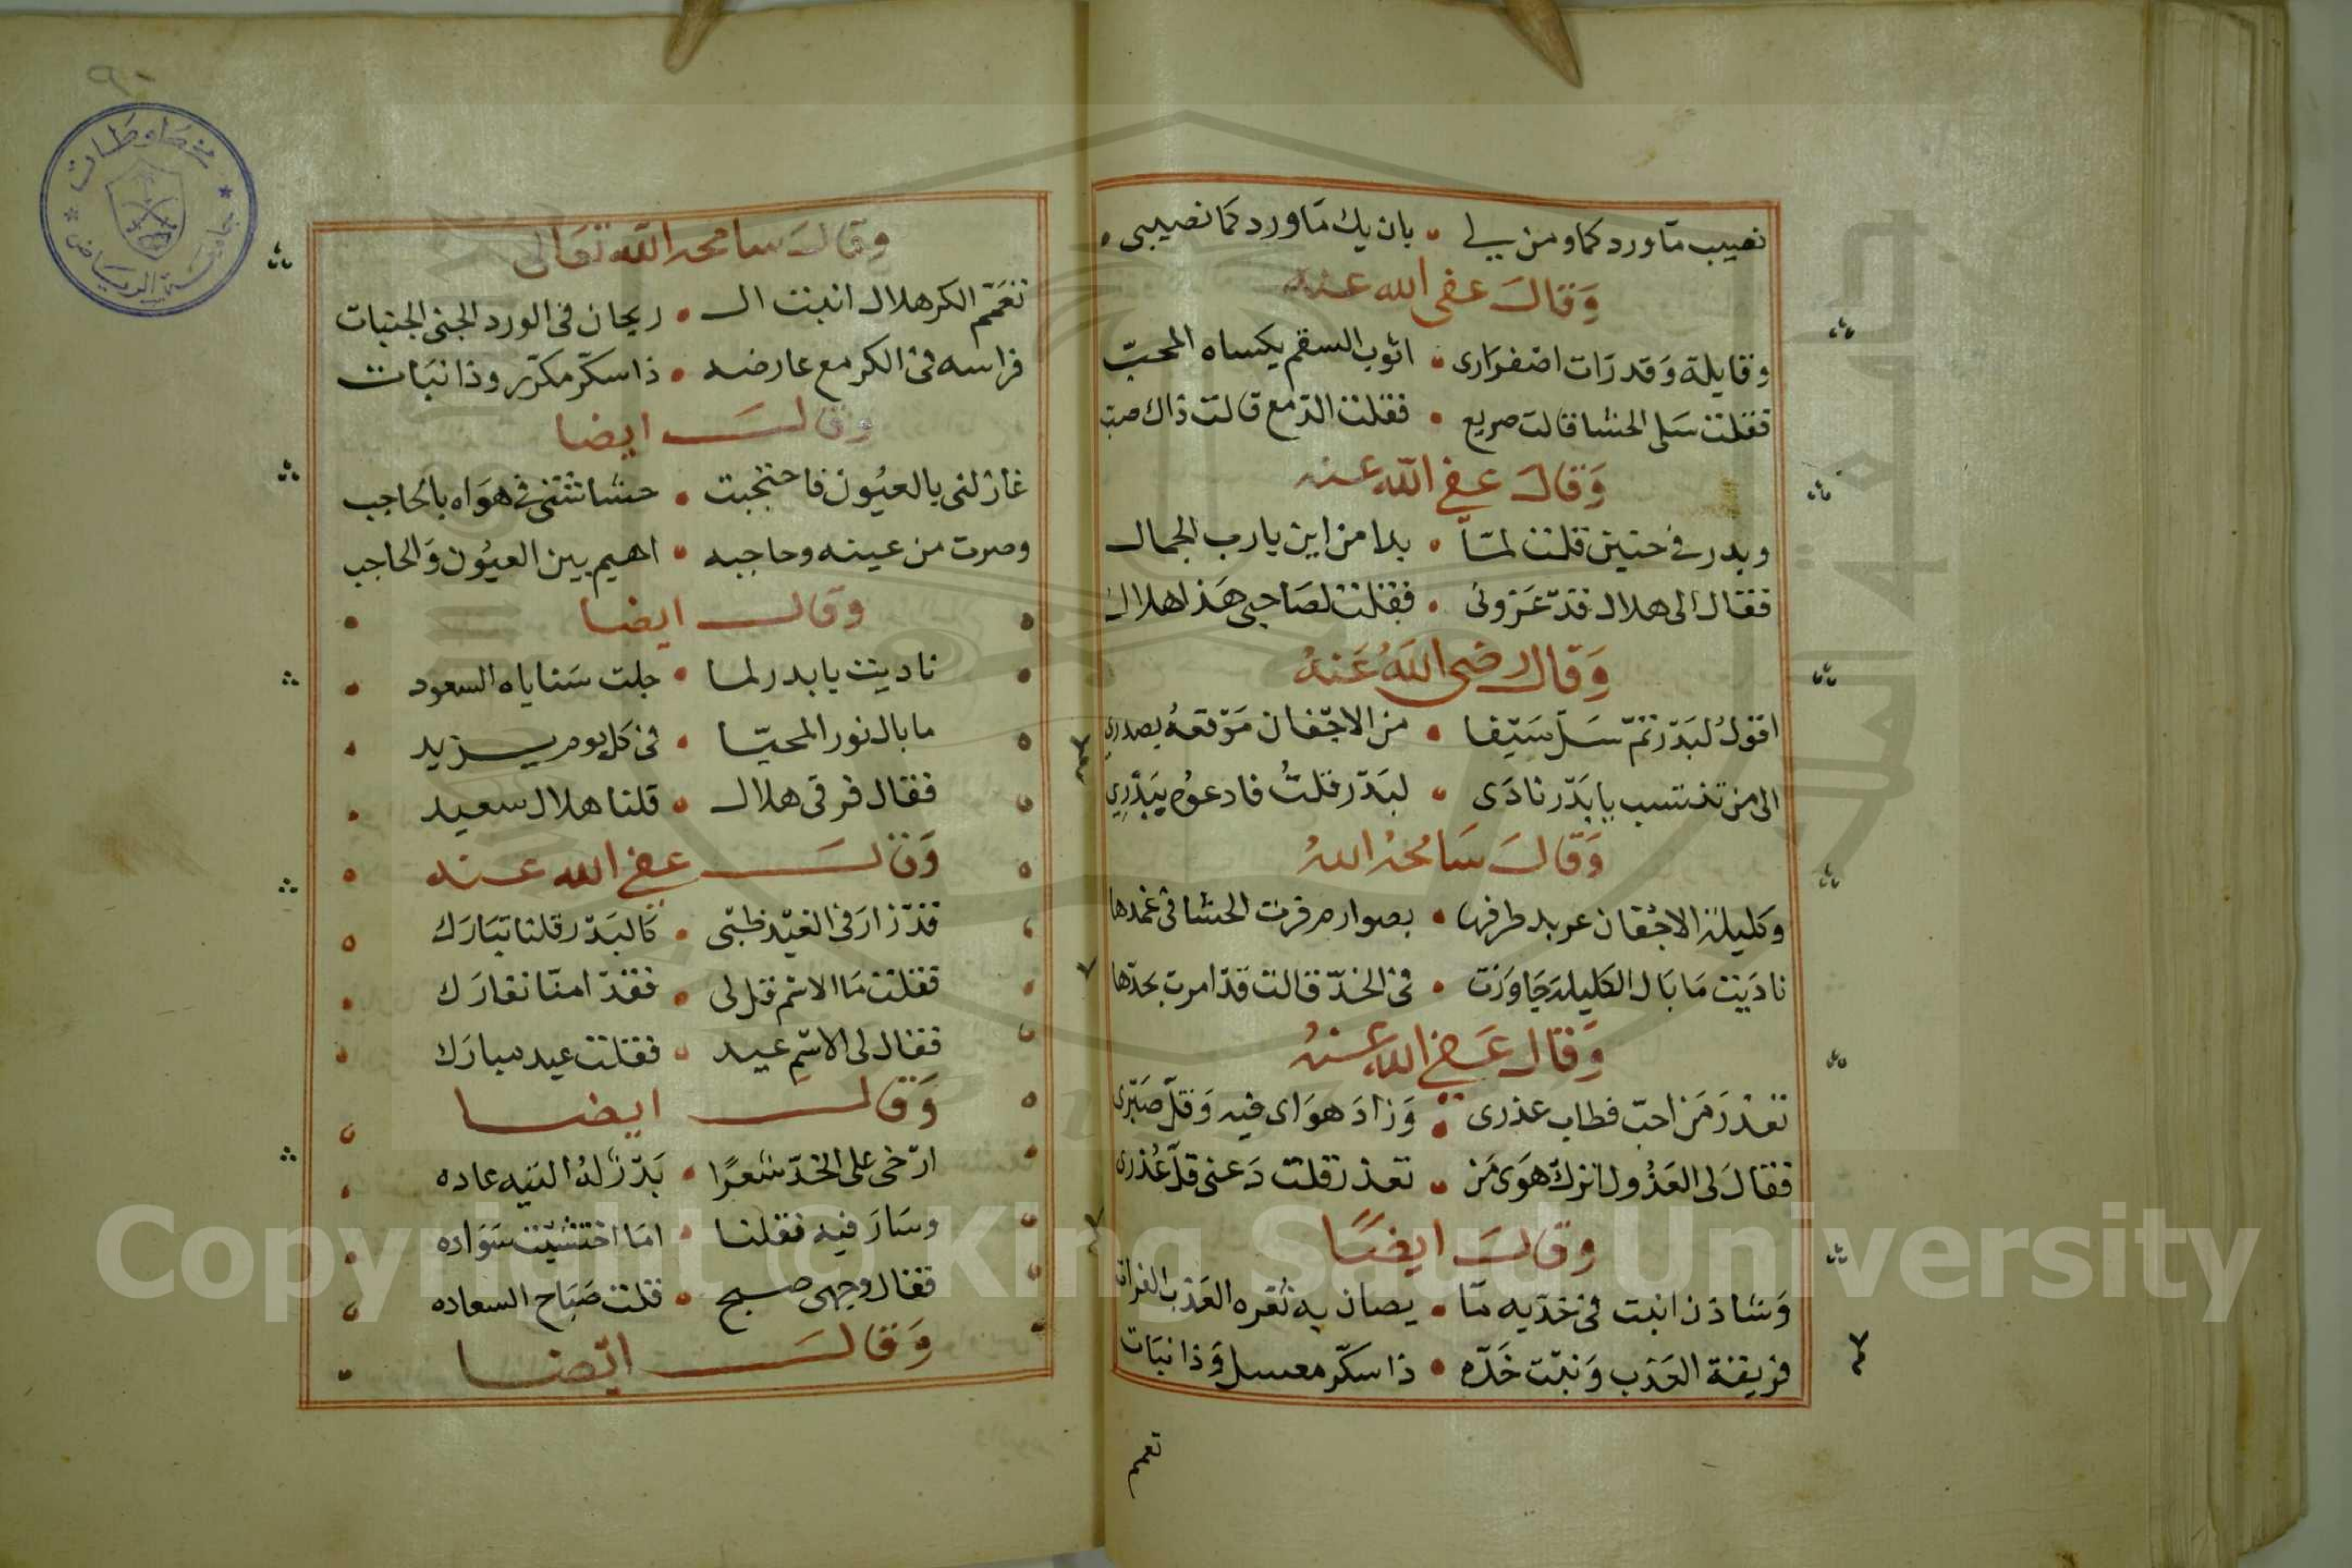 نصيب مآوردكما ومن يلي • بان يك مآوردكما نصيبي
وَقالَ عفى الله عنه
وقايلة وَقد رَات اصفرَارى • اثوب السقم يكساه المحبّ
فقلت سَلى الحشا قالت صريع • فقلت الدّمع قالت ذاك صب
وَقالَ عفى اللّه عنه
وبدر فى حنين قلت لمّا • بدا من اين يارب الجمال
فقال الى هلال قدّ عَزونى • فقلت لصَاحبى هَذا هلال
وَقال رضى اللهُ عَنهُ
اقولُ لبَدْر تمّ سَلّ سَيْفا • من الاجْفان مَوْقعهُ بصدرى
الى من تنتسب يا بَدْر نادَى • لبَدْر قلتُ فادعوُه يبَدْرِي
وَقالَ سَامحهُ اللهُ
وكليلة الاجْفان عربد طرفها • بصوارم فرت الحشا فى غمدها
نادَيت مَا بَال الكليلة جَاوَزت • فى الخدّ قالت قدّ امرت بحدّها
وَقال عَفى الله عنهُ
تعذرَ مَن احبّ فطاب عذرى • وَزادَ هوَاى فيه وَقلّ صَبْرى
فقالَ لى العَذُول اترك هوَى مَن • تعذر قلت دَعنى قلّ عُذرى
وقالَ ايضًا
وَشادن انبت فى خدّيه مّا • يصان به ثغره العَذب الفرات
فريقة العَذب وَنبْت خَدّه • ذا سكّر معسل وَذا نبَات
تعمم
وقالَ سامحه اللّه تعَالى
تعَمّم الكر هلال انبت الـ • ريحان فى الورد الجنى الجنبات
فراسه فى الكر مع عارضه • ذا سكّر مكرّر وذا نبَات
وقالَ ايضا
غازلنى بالعيُون فاحتجبت • حشاشتى فى هوَاه بالحاجب
وصرت من عينه وحاجبه • اهيم بين العيُون وَالحاجب
وقال ايضا
ناديت يا بدر لما • جلت سَناياه السعود
ما بال نور المحيّا • فى كل يوم يزيد
فقال فرقى هلال • قلنا هلال سعيد
وَقالَ عفى الله عنه
قدّ زارَ فى العيْد ظبْى • كَالبَدْر قلنا تبَارَك
فقلت مَا الاسْم قل لى • فقدّ امنّا نفارَك
فقال لى الاسْمِ عيد • فقلت عيد مبارَك
وَقال ايضا
ارْخى على الخدّ شعرًا • بَدْر لهُ التيه عاده
وسَارَ فيه فقلنا • امَا اختشيْت سَوَاده
فقال وجهى صبح • قلت صَبَاح السعاده
وَقالَ ايْضا
مخطوطات
جامعة الرياض
٩٠
Copyright © King Saud University